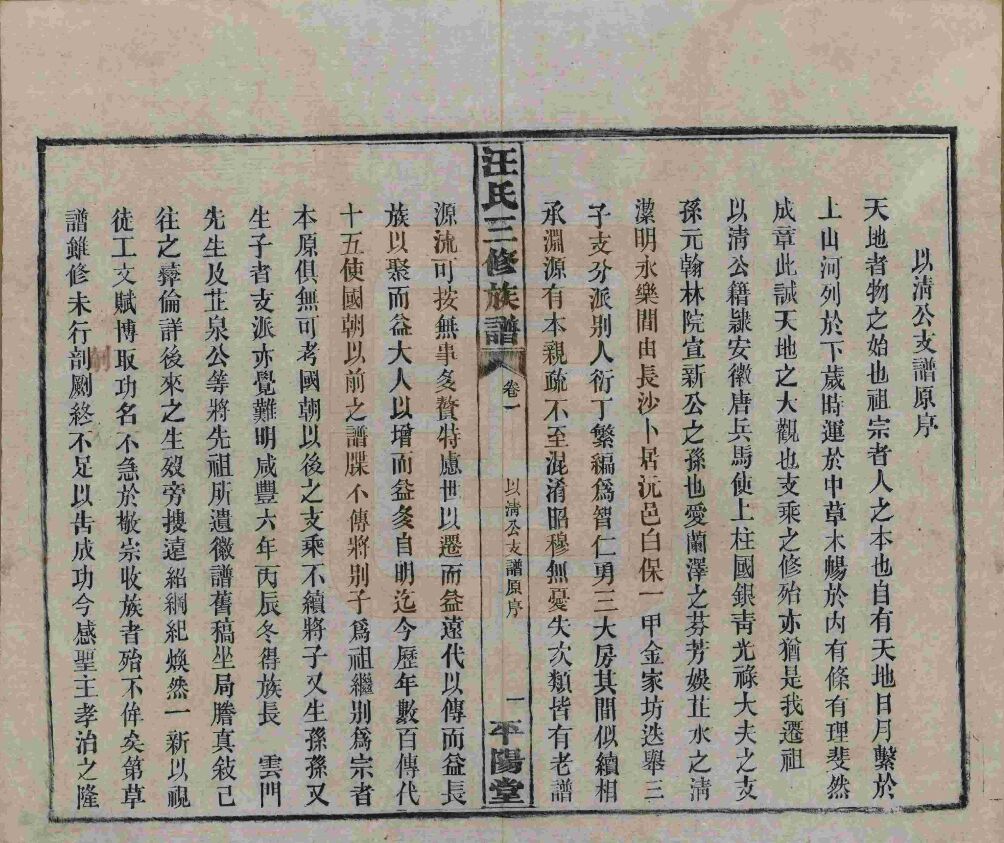 以淸公支譜原序
天地者物之始也祖宗者人之本也自有天地日月繫於
上山河列於下歲時運於中草木暢於內有條有理斐然
成章此誠天地之大觀也支乘之修殆亦猶是我遷祖
以淸公籍隷安徽唐兵馬使上柱國銀靑光祿大夫之支
孫元翰林院宣新公之孫也愛蘭澤之芬芳娛芷水之淸
潔明永樂間由長沙卜居沅邑白保一甲金家坊迭舉三
子支分派别人衍丁繁編爲智仁勇三大房其間似續相
承淵源有本親疏不至混淆昭穆無憂失次類皆有老譜
汪氏三修族譜
卷一
以淸公支譜原序
一
平陽堂
源流可按無事多贅特慮世以遷而益遠代以傳而益長
族以聚而益大人以增而益多自明迄今歷年數百傳代
十五使國朝以前之譜牒不傳將别子爲祖繼别爲宗者
本原俱無可考國朝以後之支乘不續將子又生孫孫又
生子者支派亦覺難明咸豐六年丙辰冬得族長　雲門
先生及芷泉公等將先祖所遺徽譜舊稿坐局謄真敍已
往之彝倫詳後來之生歿旁搜遠紹綱紀煥然一新以視
徒工文賦博取功名不急於敬宗收族者殆不侔矣第草
譜雖修未行剖劂終不足以吿成功今感聖主孝治之隆
剞